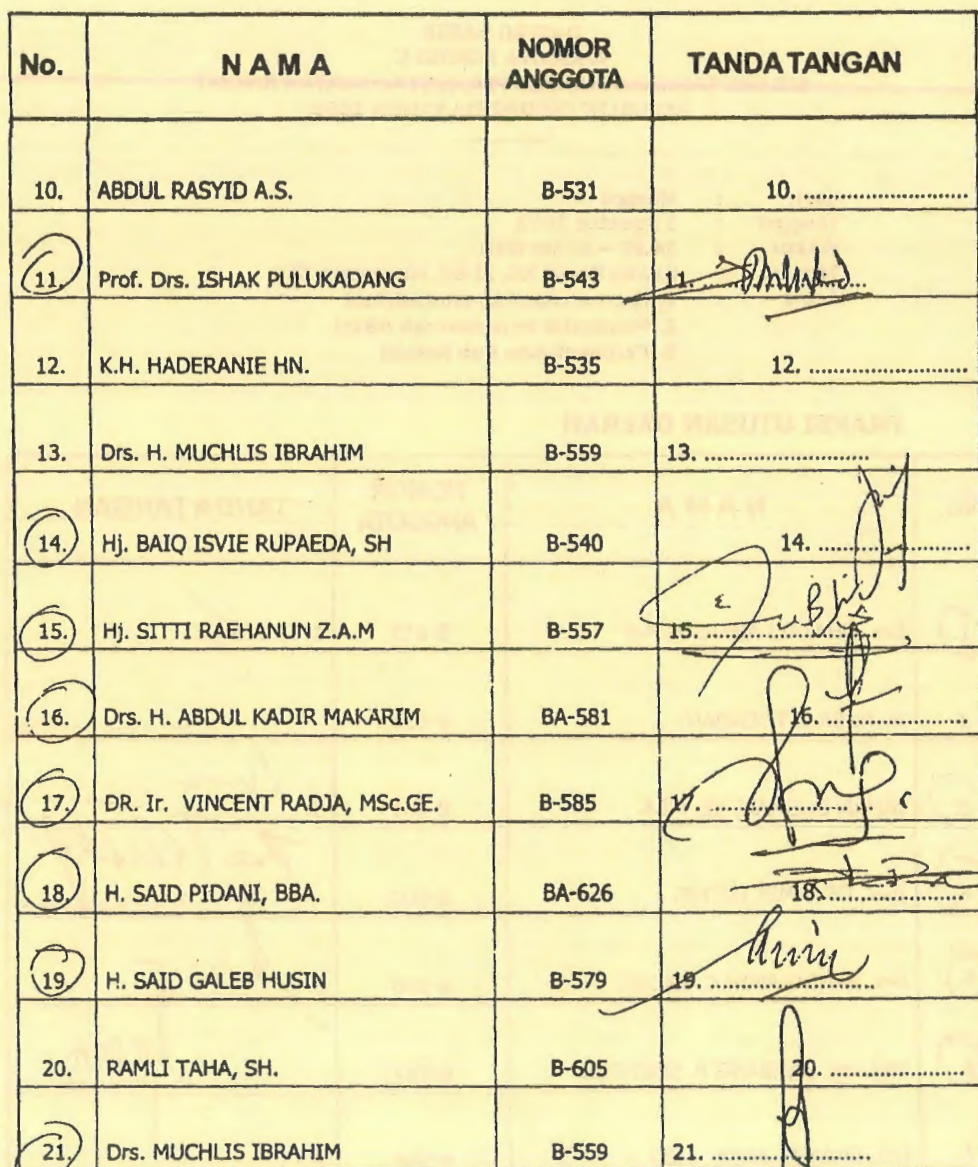 No. NAMA NOMOR ANGGOTA TANDA TANGAN
10. ABDUL RASYID A.S. B-531 10. ........................
11. Prof. Drs. ISHAK PULUKADANG B-543 11. ........................
12. K.H. HADERANIE HN. B-535 12. ........................
13. Drs. H. MUCHLIS IBRAHIM B-559 13. ........................
14. Hj. BAIQ ISVIE RUPAEDA, SH B-540 14. ........................
15. Hj. SITTI RAEHANUN Z.A.M B-557 15. ........................
16. Drs. H. ABDUL KADIR MAKARIM BA-581 16. ........................
17. DR. Ir. VINCENT RADJA, MSc.GE. B-585 17. ........................
18. H. SAID PIDANI, BBA. BA-626 18. ........................
19. H. SAID GALEB HUSIN B-579 19. ........................
20. RAMLI TAHA, SH. B-605 20. ........................
21. Drs. MUCHLIS IBRAHIM B-559 21. ........................